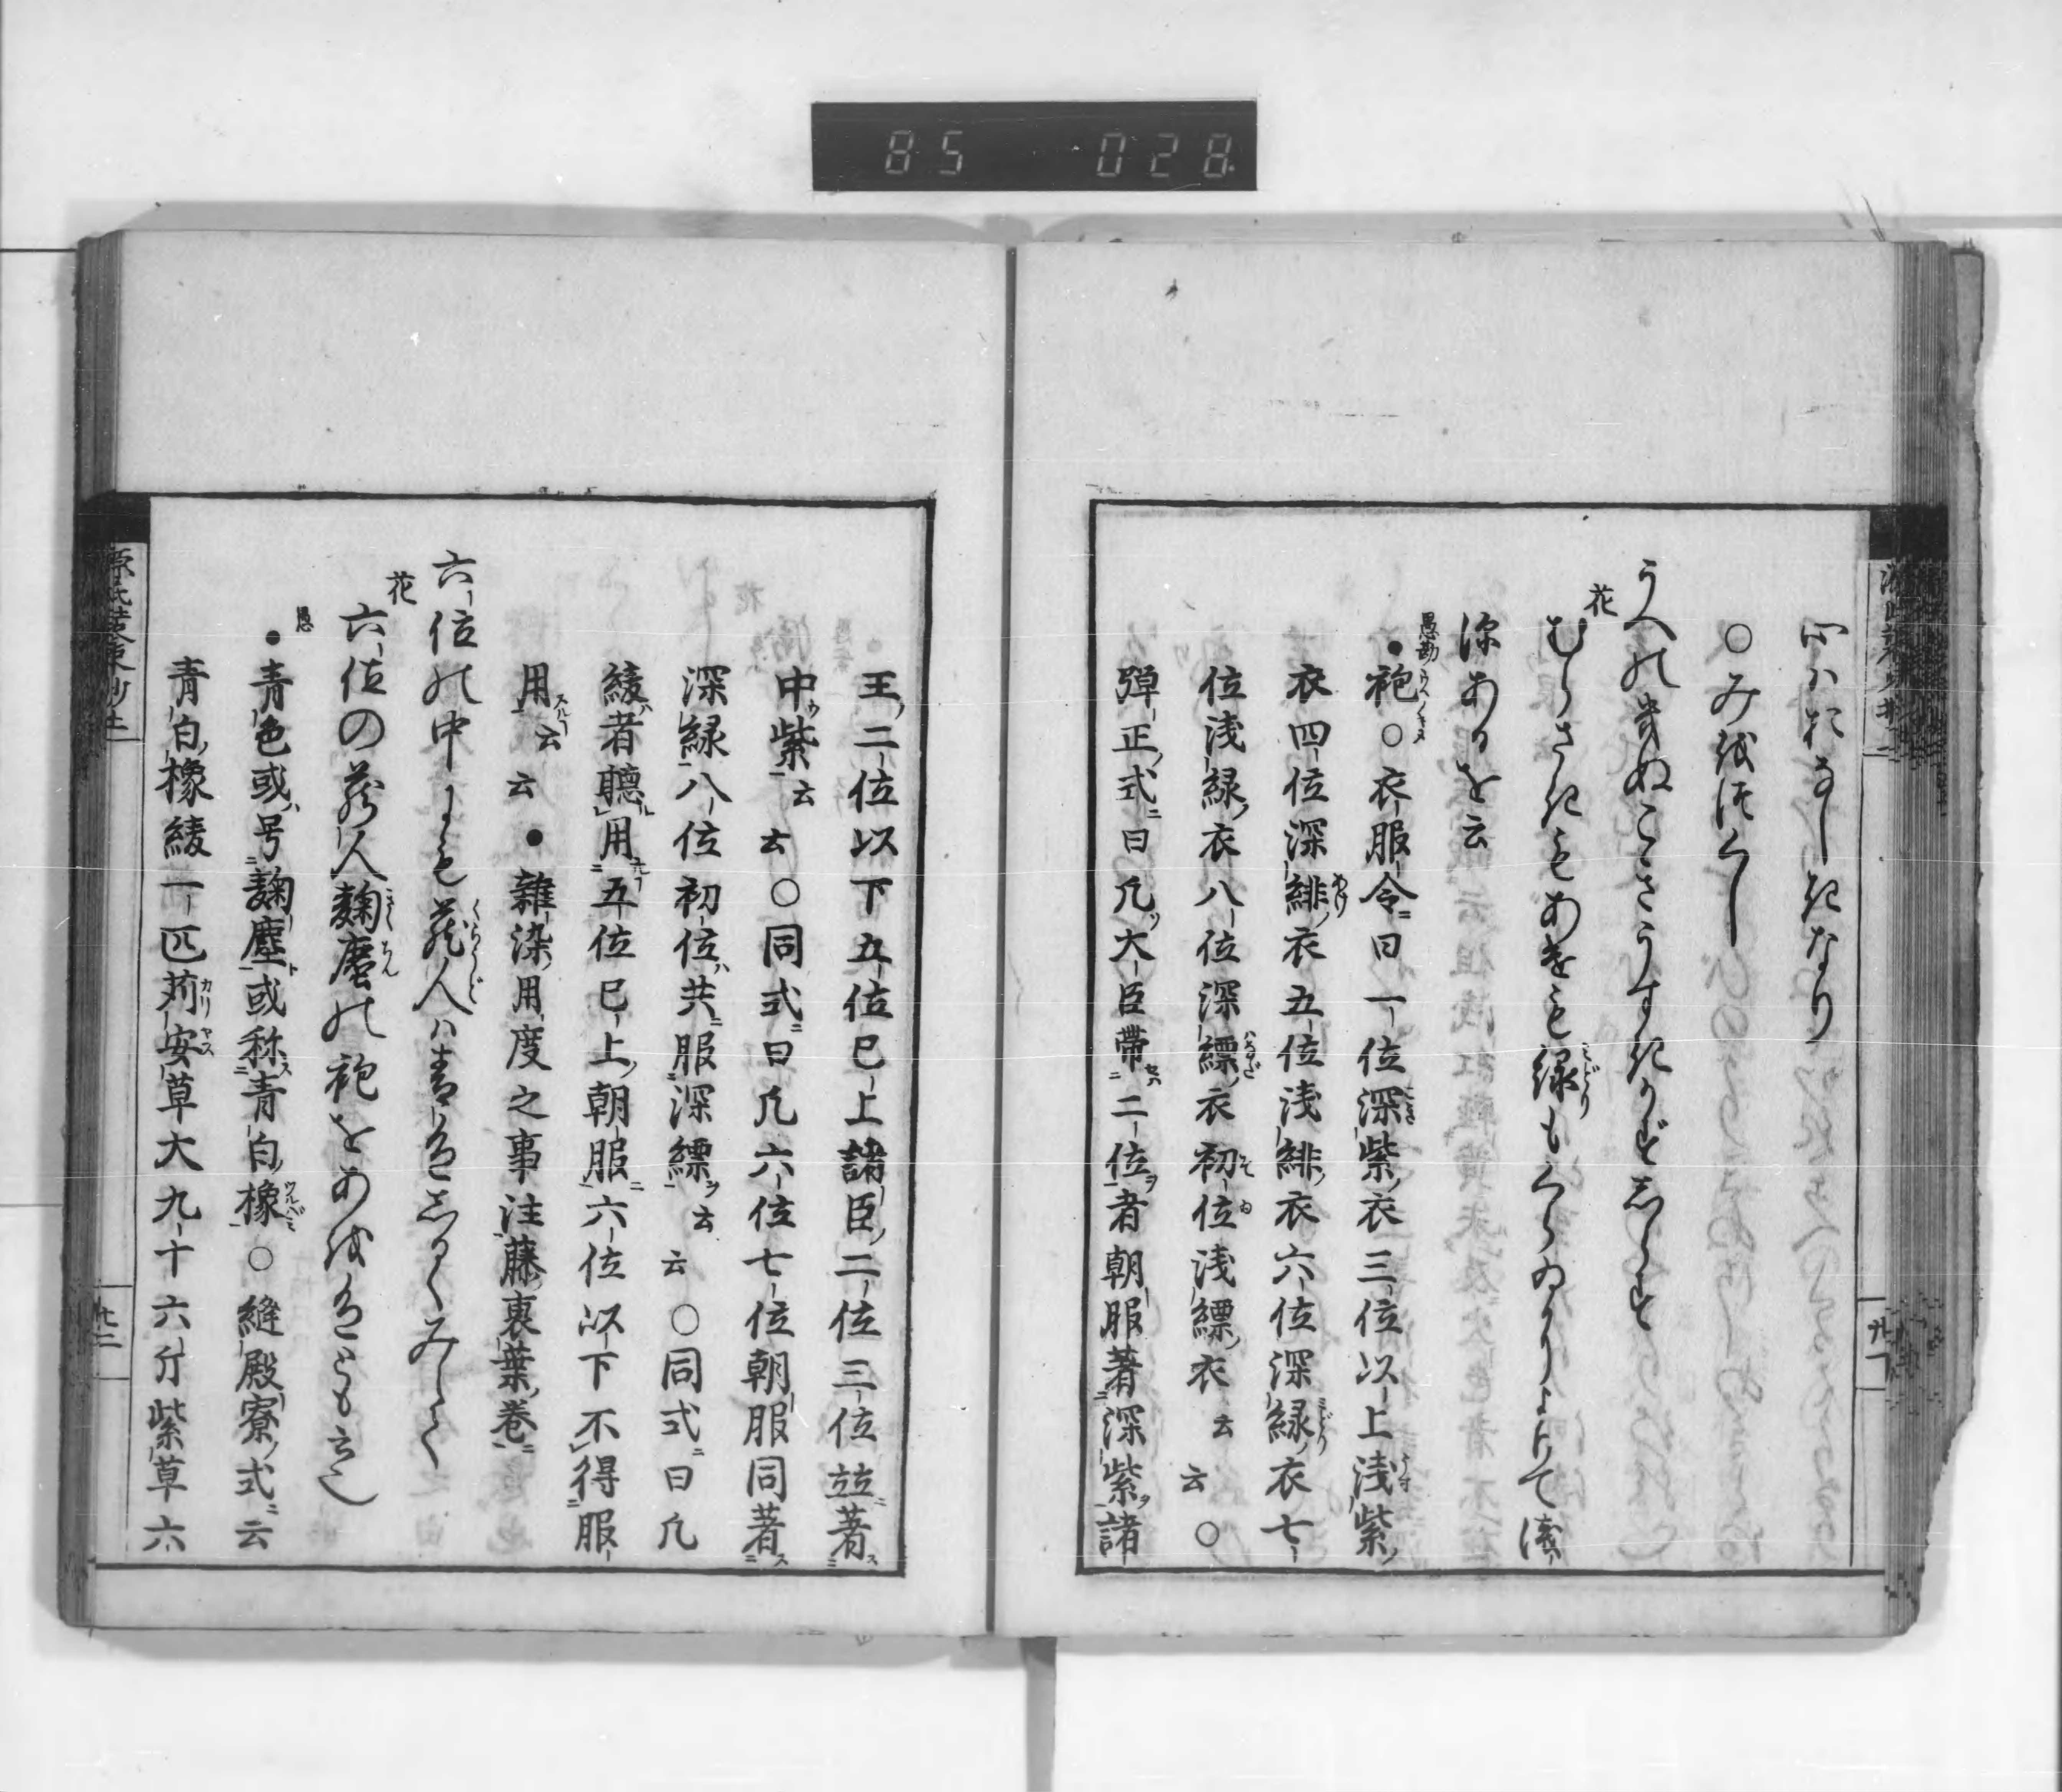 85 028
心はおなしきなり
○みをつくし
うへのきぬこきうすきかすしらす
花 むらさきもあけも緑もくらゐによりて浅
深あるを云
愚勘 ●袍○衣服令曰一位深紫衣三位以上浅紫
衣四位深緋衣五位浅緋衣六位深緑衣七
位浅緑衣八位深縹衣初位浅縹衣云云○
弾正式曰凡大臣帯二位者朝服著深紫諸
王二位以下五位已上諸臣二位三位並著
中紫云云○同式曰凡六位七位朝服同著
深緑八位初位共服深縹云云○同式曰凡
綾者聴用五位已上朝服六位以下不得服
用云云●雑染用度之事注藤裏葉巻
六位の中にも蔵人は青色しるくみしく
花 六位の蔵人麹塵の袍をあを色とも云也
愚 ●青色或号麹塵或称青白橡○縫殿寮式云
青白橡綾一匹苅安草大九十六斤紫草六
源氏装束抄上
廿二